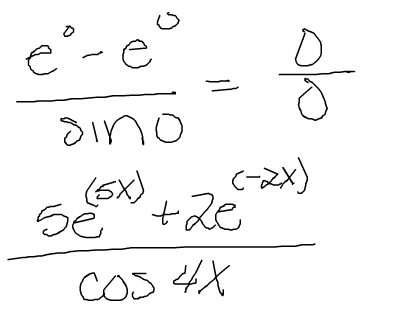 e^0 - e^0 / sin 0 = 0 / 0
5e^(5x) + 2e^(-2x) / cos 4x